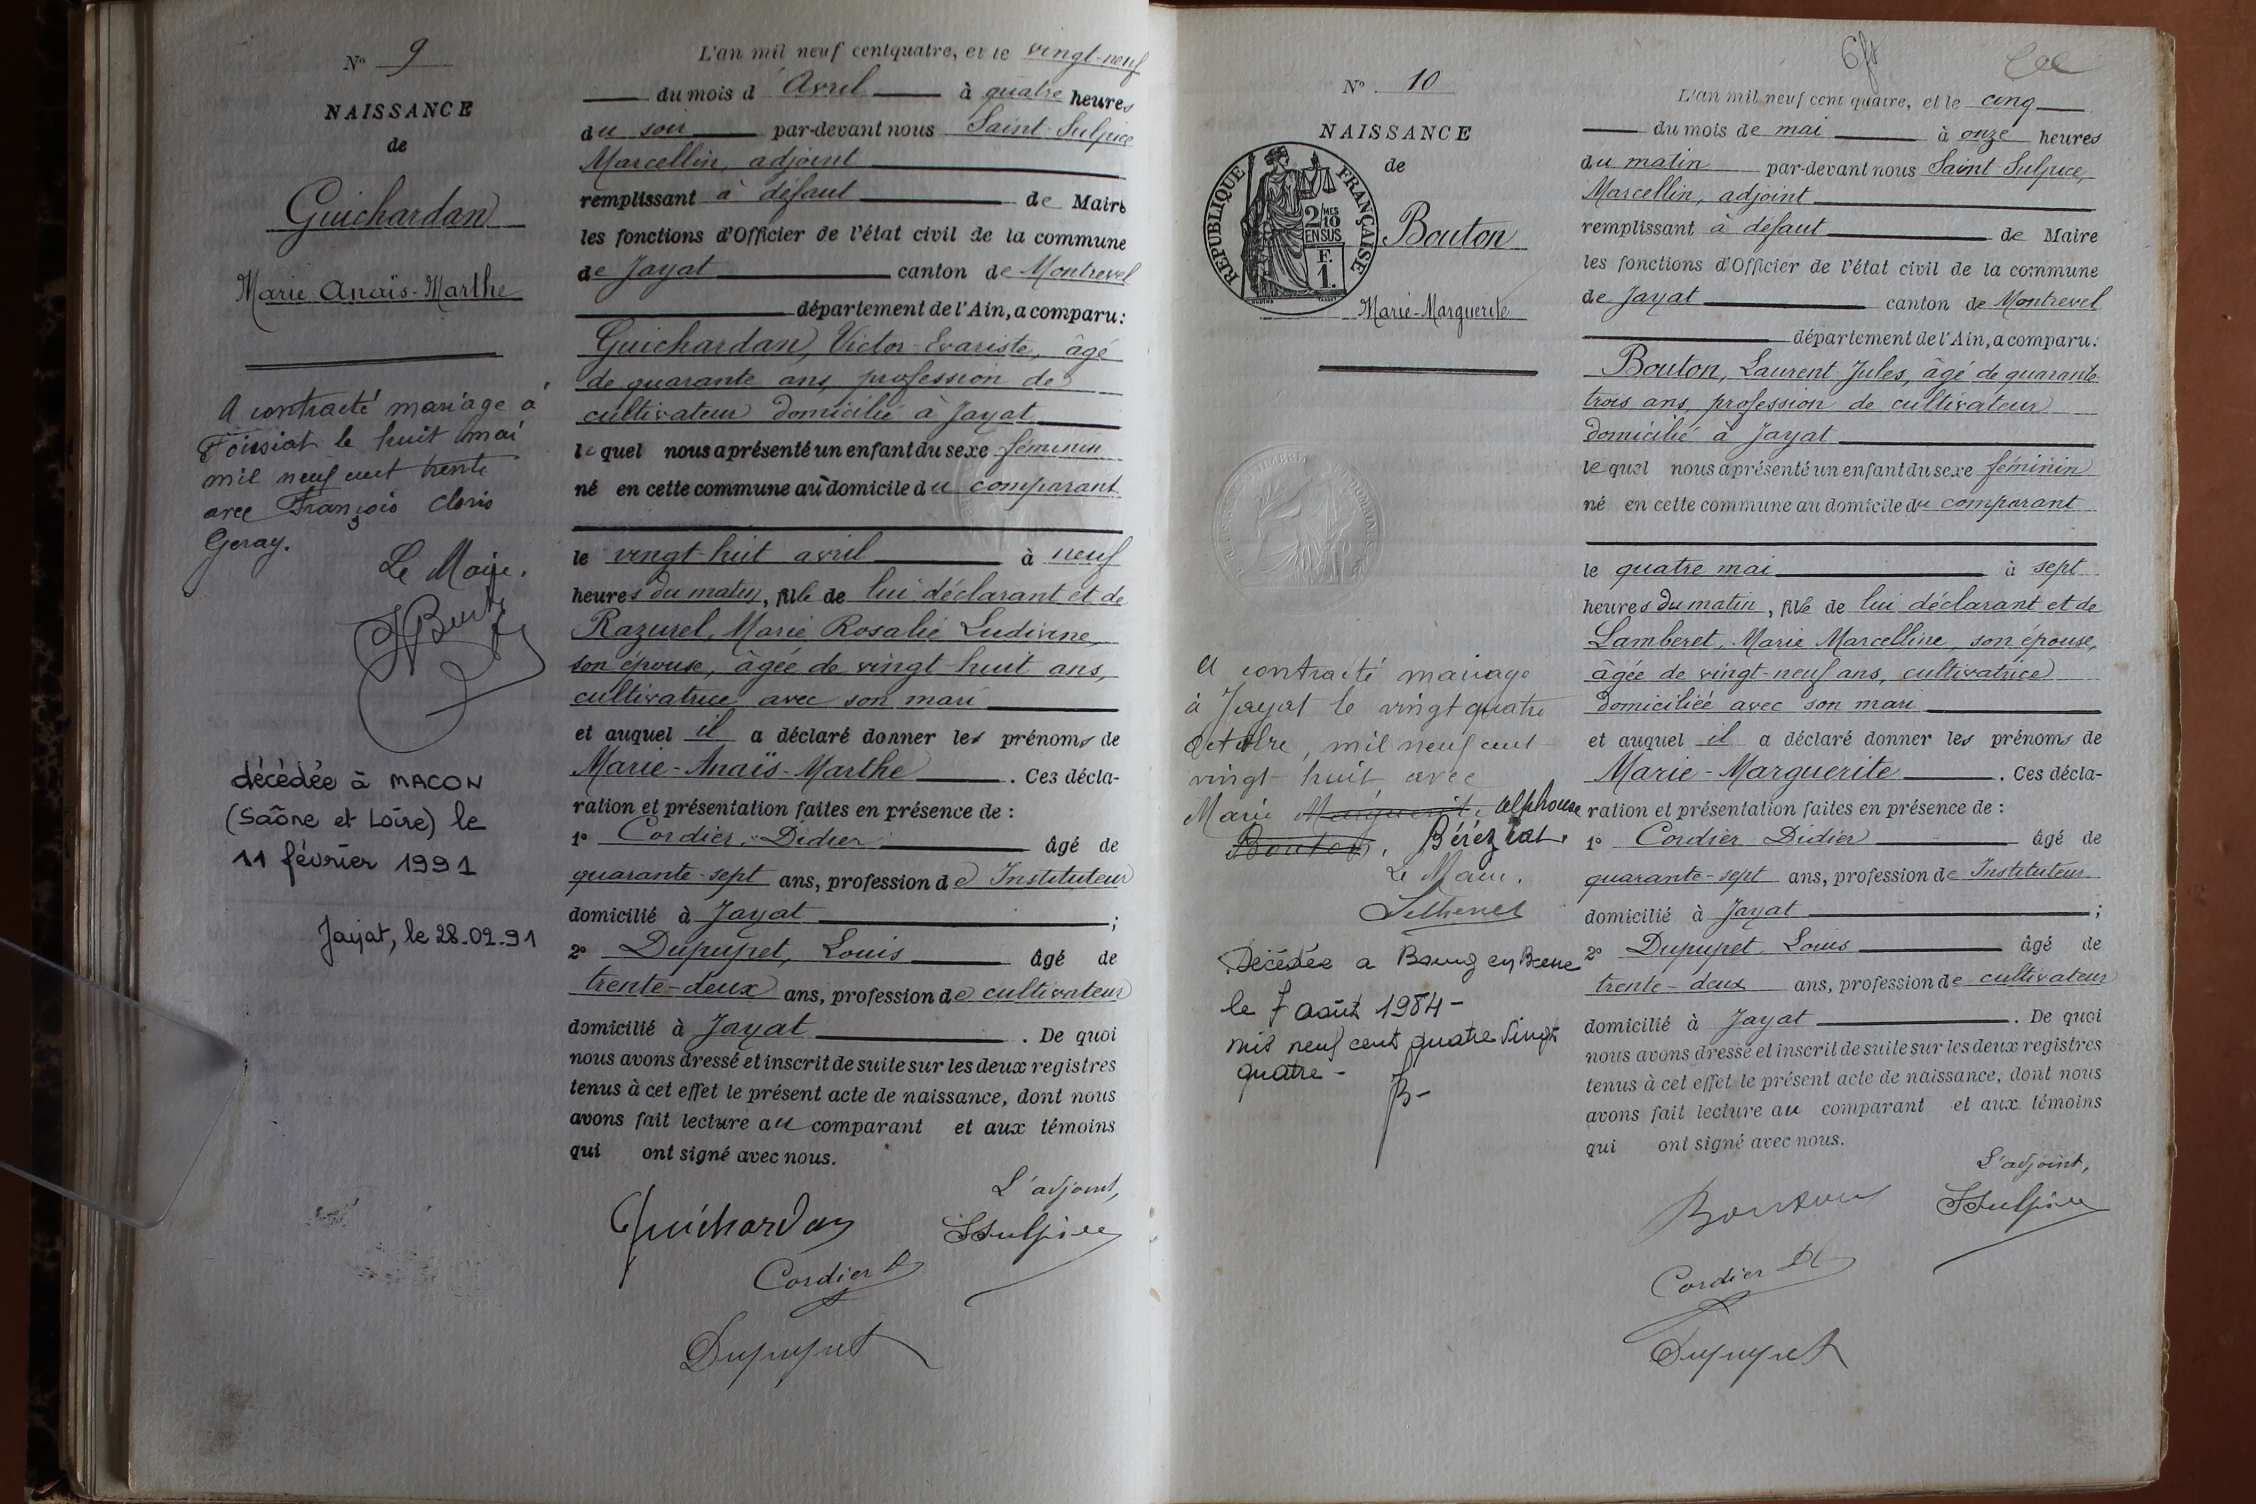 N° 9
NAISSANCE
de
Guichardan
Marie-Anaïs-Marthe
A contracté mariage à
Foissiat le huit mai
mil neuf cent trente
avec François Cloris
Geray.
Le Maire.
décédée à MACON
(Saône et Loire) le
11 février 1991
Jayat, le 28.02.91
L'an mil neuf cent quatre, et le vingt-neuf
du mois d'Avril à quatre heures
du soir par-devant nous Saint-Sulpice
Marcellin, adjoint
remplissant à défaut de Maire
les fonctions d'Officier de l'état civil de la commune
de Jayat canton de Montrevel
département de l'Ain, a comparu:
Guichardan, Victor-Evariste, âgé
de quarante ans, profession de
cultivateur domicilié à Jayat
lequel nous a présenté un enfant du sexe féminin
né en cette commune au domicile du comparant
le vingt-huit avril à neuf
heures du matin, fille de lui déclarant et de
Razurel, Marie Rosalie Ludivine,
son épouse, âgée de vingt-huit ans,
cultivatrice avec son mari
et auquel il a déclaré donner les prénoms de
Marie-Anaïs-Marthe. Ces décla-
ration et présentation faites en présence de :
1° Cordier, Didier âgé de
quarante-sept ans, profession de Instituteur
domicilié à Jayat ;
2° Dupupet, Louis âgé de
trente-deux ans, profession de cultivateur
domicilié à Jayat . De quoi
nous avons dressé et inscrit de suite sur les deux registres
tenus à cet effet le présent acte de naissance, dont nous
avons fait lecture au comparant et aux témoins
qui ont signé avec nous.
L'adjoint,
Guichardan SSulpice
Cordier D
Dupupet
N° 10
NAISSANCE
de
RÉPUBLIQUE FRANÇAISE
2/10 MES
EN SUS
F.
1.
Bouton
Marie-Marguerite
A contracté mariage
à Jayat le vingt quatre
Octobre, mil neuf cent
vingt-huit avec
Marie Marguerite Alphonse
Bouton, Béréziat.
Le Maire.
Décédée a Bourg en Bresse
le 7 août 1984 -
mil neuf cent quatre vingt
quatre -
L'an mil neuf cent quatre, et le cinq
du mois de mai à onze heures
du matin par-devant nous Saint-Sulpice,
Marcellin, adjoint
remplissant à défaut de Maire
les fonctions d'Officier de l'état civil de la commune
de Jayat canton de Montrevel
département de l'Ain, a comparu:
Bouton, Laurent-Jules, âgé de quarante-
trois ans, profession de cultivateur
domicilié à Jayat
lequel nous a présenté un enfant du sexe féminin
né en cette commune au domicile du comparant
le quatre mai à sept
heures du matin, fille de lui déclarant et de
Lamberet, Marie Marcelline, son épouse,
âgée de vingt-neuf ans, cultivatrice
domiciliée avec son mari
et auquel il a déclaré donner les prénoms de
Marie-Marguerite. Ces décla-
ration et présentation faites en présence de :
1° Cordier Didier âgé de
quarante-sept ans, profession de Instituteur
domicilié à Jayat ;
2° Dupupet Louis âgé de
trente-deux ans, profession de cultivateur
domicilié à Jayat . De quoi
nous avons dressé et inscrit de suite sur les deux registres
tenus à cet effet le présent acte de naissance, dont nous
avons fait lecture au comparant et aux témoins
qui ont signé avec nous.
L'adjoint,
Bouton SSulpice
Cordier D
Dupupet